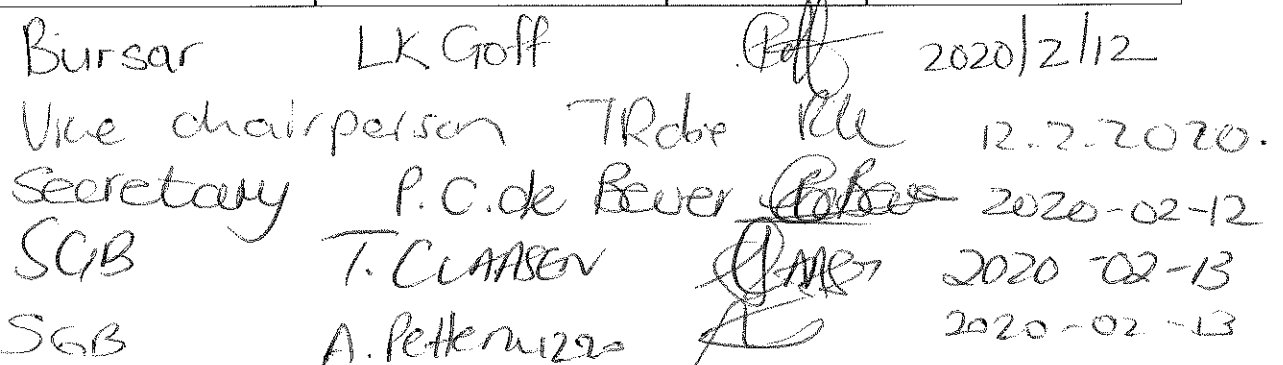 Bursar LK Goff 2020/2/12
Vice chairperson TRobe 12.2.2020.
Secretary P.C. de Bever 2020-02-12
SGB T. CLAASEN 2020-02-13
SGB A. 2020-02-13